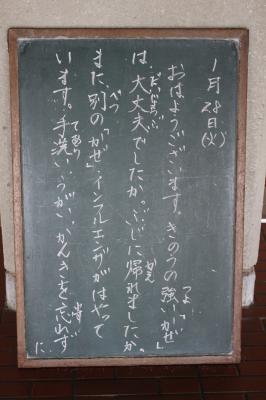 1月28日(火)
おはようございます。きのうの強い「かぜ」
は、大丈夫でしたか。ぶじに帰れましたか。
また、別の「かぜ」、インフルエンザがはやって
います。手洗い、うがい、かんきを忘れずに